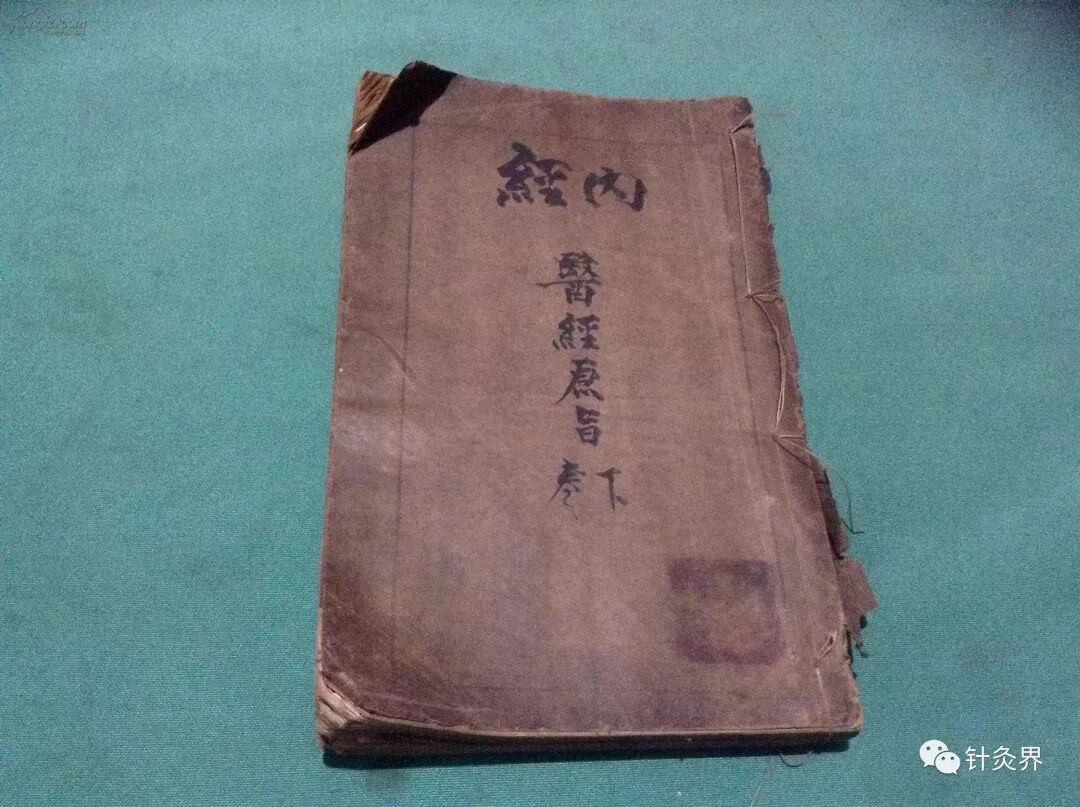 內經
醫經原旨
下卷
针灸界